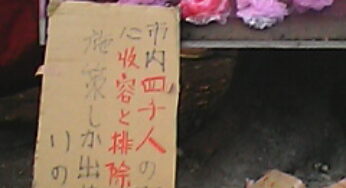 市内四千人の
に収容と排除
施策しか出
りの